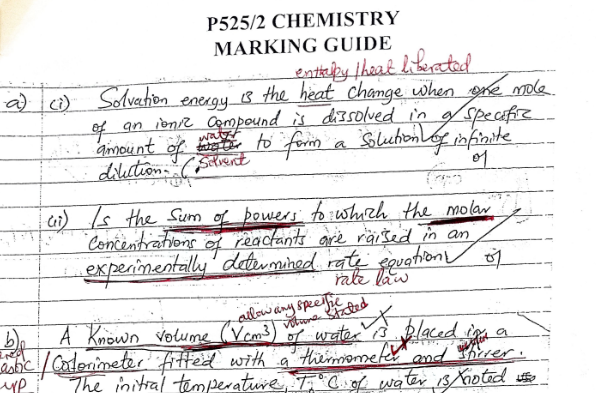 P525/2 CHEMISTRY
MARKING GUIDE
enthalpy / heat liberated
a) (i) Solvation energy is the heat change when one mole
of an ionic compound is dissolved in a specific
water
amount of to form a solution of infinite
dilution. (Solvent 01
(ii) Is the sum of powers to which the molar
concentrations of reactants are raised in an
experimentally determined rate equation 01
rate law
allow any specific
volume stated
b) A known volume (Vcm3) of water is placed in a
plastic / Calorimeter fitted with a thermometer and stirrer.
cup The initial temperature, T1°C of water is noted